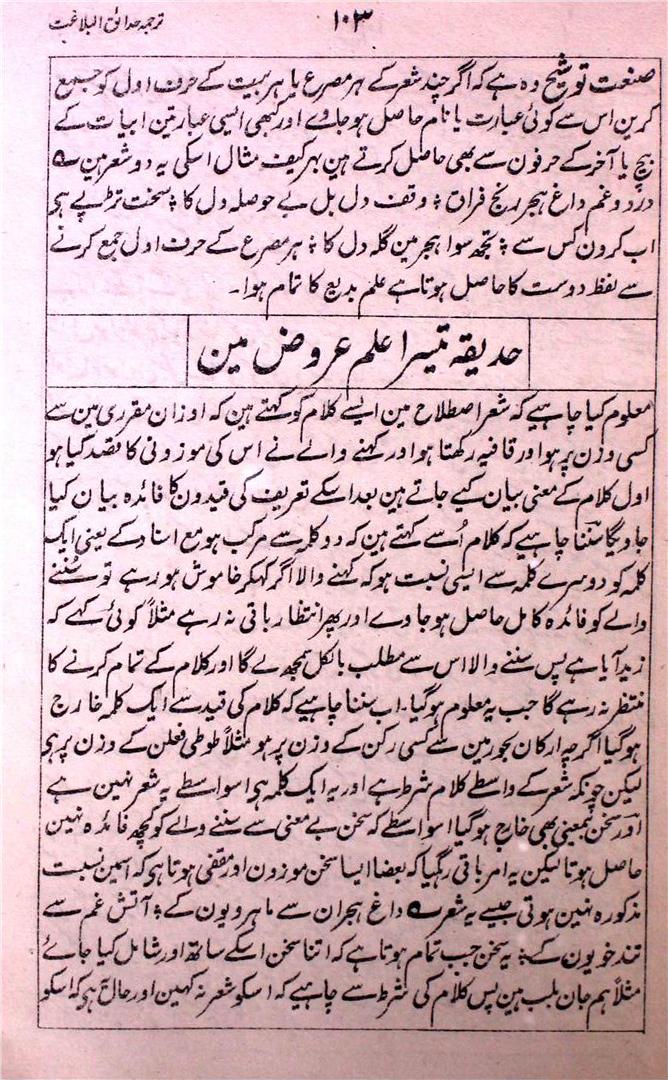 ترجمہ حدائق البلاغت
۱۰۳
صنعت توشیح وہ ہے کہ اگر چند شعر کے ہر مصرع یا ہر بیت کے حرف اول کو جمع
کرین اس سے کوئی عبارت یا نام حاصل ہو جاوے اور کبھی ایسی عبارتین ابیات کے
بیچ یا آخر کے حرفون سے بھی حاصل کرتے ہین بہر کیف مثال اسکی یہ دو شعر ہین ؎
درد و غم داغ ہجر رنج فراق ؛ وقف دل بل بے حوصلہ دل کا ؛ سخت تڑپے ہی
اب کرون کس سے ؛ تجھ سوا ہجر مین گلہ دل کا ؛ ہر مصرع کے حرف اول جمع کرنے
سے لفظ دوست کا حاصل ہوتا ہے علم بدیع کا تمام ہوا۔
حدیقہ تیسرا علم عروض مین
معلوم کیا چاہیے کہ شعر اصطلاح مین ایسے کلام کو کہتے ہین کہ اوزان مقرری مین سے
کسی وزن پر ہو اور قافیہ رکھتا ہو اور کہنے والے نے اس کی موزونی کا قصد کیا ہو
اول کلام کے معنی بیان کیے جاتے ہین بعد اسکے تعریف کی قیدون کا فائدہ بیان کیا
جاویگا سننا چاہیے کہ کلام اُسے کہتے ہین کہ دو کلمہ سے مرکب ہو مع اسناد کے یعنی ایک
کلمہ کو دوسرے کلمہ سے ایسی نسبت ہو کہ کہنے والا اگر کہکر خاموش ہو رہے تو سُننے
والے کو فائدہ کامل حاصل ہو جاوے اور پھر انتظار باقی نہ رہے مثلاً کوئی کہے کہ
زید آیا ہے پس سننے والا اس سے مطلب بالکل سمجھ لے گا اور کلام کے تمام کرنے کا
منتظر نہ رہے گا جب یہ معلوم ہو گیا۔ اب سننا چاہیے کہ کلام کی قید سے ایک کلمہ خارج
ہو گیا اگرچہ ارکان بحور مین سے کسی رکن کے وزن پر ہو مثلاً طوطی فعلن کے وزن پر ہی
لیکن چونکہ شعر کے واسطے کلام شرط ہے اور یہ ایک کلمہ ہی اسواسطے یہ شعر نہین ہے
اور سخن بمعنی بھی خارج ہو گیا اسواسطے کہ سخن بے معنی سے سننے والے کو کچھ فائدہ نہین
حاصل ہوتا لیکن یہ امر باقی رہ گیا کہ بعضا ایسا سخن موزون اور مقفی ہوتا ہی کہ اسمین نسبت
مذکورہ نہین ہوتی جیسے یہ شعر ؎ داغ ہجران سے ماہرویون کے ؛ آتش غم سے
تند خویون کے ؛ یہ سخن جب تمام ہوتا ہے کہ اتنا سخن اسکے ساتھ اور شامل کیا جائے
مثلاً ہم جان بلب ہین پس کلام کی شرط سے چاہیے کہ اسکو شعر نہ کہین اور حال یہ ہی کہ اسکو